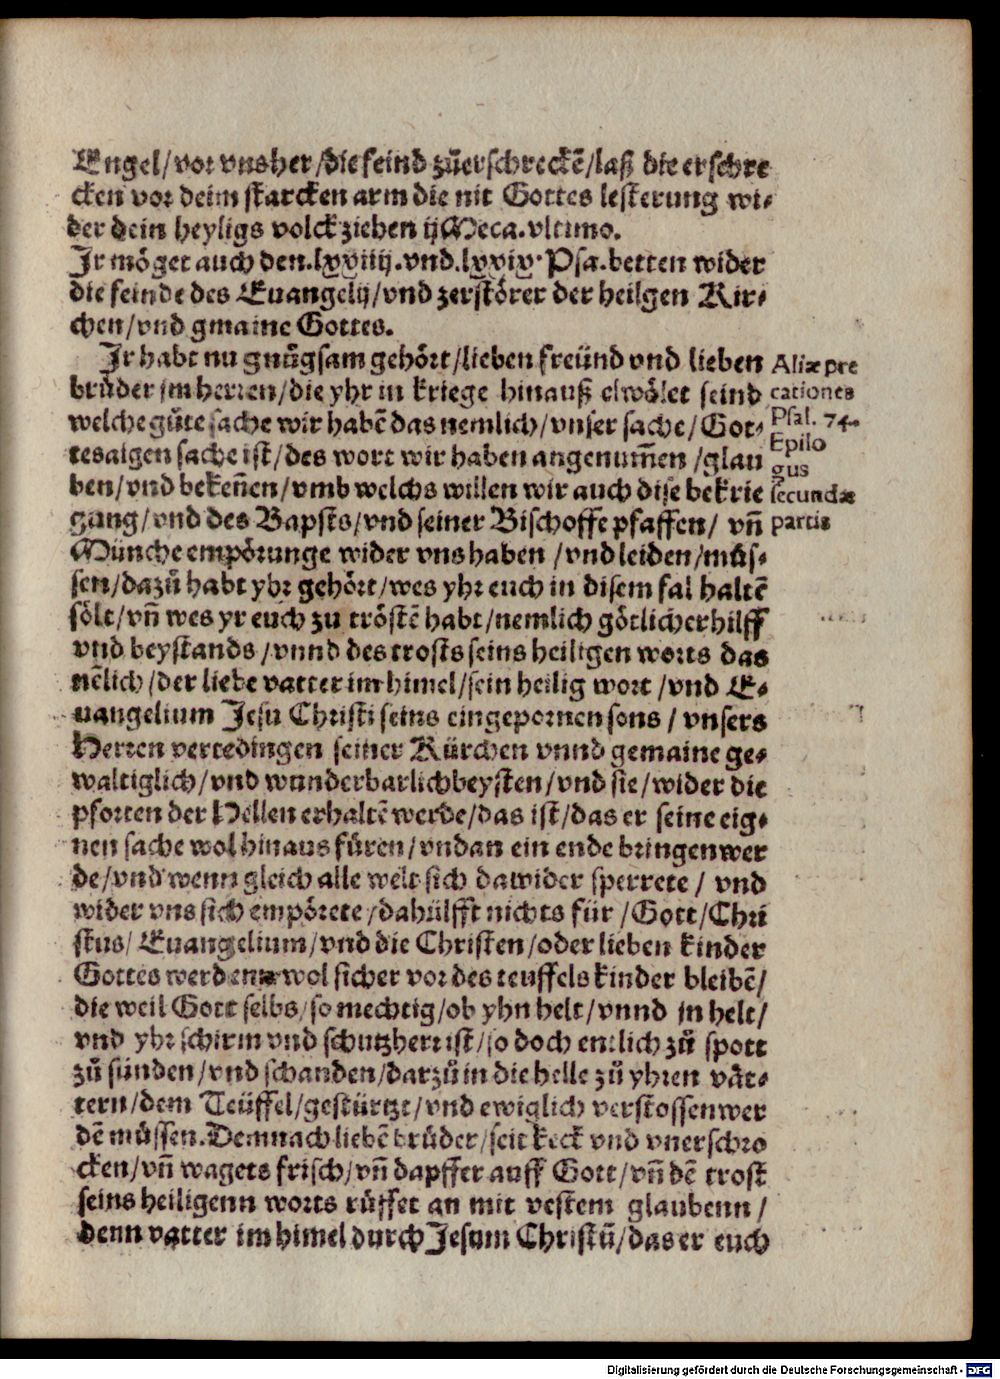 Engel/vor vnsher/die feind zůerschreckē/laß die erschre
cken vor deim starcken arm die nit Gottes lesterung wi-
der dein heyligs volck ziehen ij Meca. vltimo.
Jr möget auch den.lxxiiij.vnd.lxxix. Psa. betten wider
die feinde des Euangelij/vnd zerstörer der heilgen Kir-
chen/vnd gmaine Gottes.
Jr habt nu gnůgsam gehört/lieben freünd vnd lieben
brůder jm herren/die yhr in kriege hinauß elwölet seind
welche gůte sache wir habē das nemlich/vnser sache/Got-
tes aigen sache ist/des wort wir haben angenum̄en/glau
ben/vnd beken̄en/vmb welchs willen wir auch dise bekrie
gung/vnd des Bapsts/vnd seiner Bischoffe pfaffen/ vn̄
Münche empörunge wider vns haben /vnd leiden/můs-
sen/dazů habt yhr gehört/wes yhr euch in disem fal haltē
sölt/vn̄ wes yr euch zu tröstē habt/nemlich götlicher hilff
vnd beystands/vnnd des trosts seins heiligen worts das
nēlich/der liebe vatter im himel/sein heilig wort/vnd E-
uangelium Jesu Christi seins eingepornen sons/vnsers
Herren vertedingen seiner Kürchen vnnd gemaine ge-
waltiglich/vnd wunderbarlich beysten/vnd sie/wider die
pforten der Hellen erhaltē werde/das ist/das er seine eig-
nen sache wol hinaus füren/vndan ein ende bringen wer
de/vnd wenn gleich alle welt sich dawider sperrete/ vnd
wider vns sich empörete/da hülfft nichts für/Gott/Chri
stus/ Euangelium/vnd die Christen/oder lieben kinder
Gottes werden wol sicher vor des teuffels kinder bleibē/
die weil Gott selbs/so mechtig/ob yhn helt/vnnd in helt/
vnd yhr schirm vnd schutzherr ist/so doch entlich zů spott
zů sünden/vnd schanden/darzů in die helle zů yhren vät-
tern/dem Teüffel/gestürtzt/vnd ewiglich verstossen wer
dē müssen. Demnach liebē brüder/seit keck vnd vnerschro
cken/vn̄ wagets frisch/vn̄ dapffer auff Gott/vn̄ dē trost
seins heiligenn worts rüffet an mit vestem glaubenn/
denn vatter im himel durch Jesum Christū/das er euch
Aliæ pre
cationes
Psal. 74.
Epilo
gus
secundæ
partis
Digitalisierung gefördert durch die Deutsche Forschungsgemeinschaft - DFG